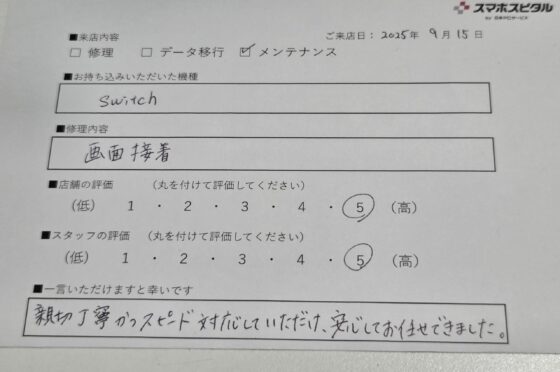 スマホスピタル
■来店内容
ご来店日：2025年 9月 15日
□ 修理 □ データ移行 ☑ メンテナンス
■お持ち込みいただいた機種
switch
■修理内容
画面接着
■店舗の評価 (丸を付けて評価してください)
(低) 1 ・ 2 ・ 3 ・ 4 ・ 5 (高)
■スタッフの評価 (丸を付けて評価してください)
(低) 1 ・ 2 ・ 3 ・ 4 ・ 5 (高)
■一言いただけますと幸いです
親切丁寧かつスピード対応していただけ、安心してお任せできました。